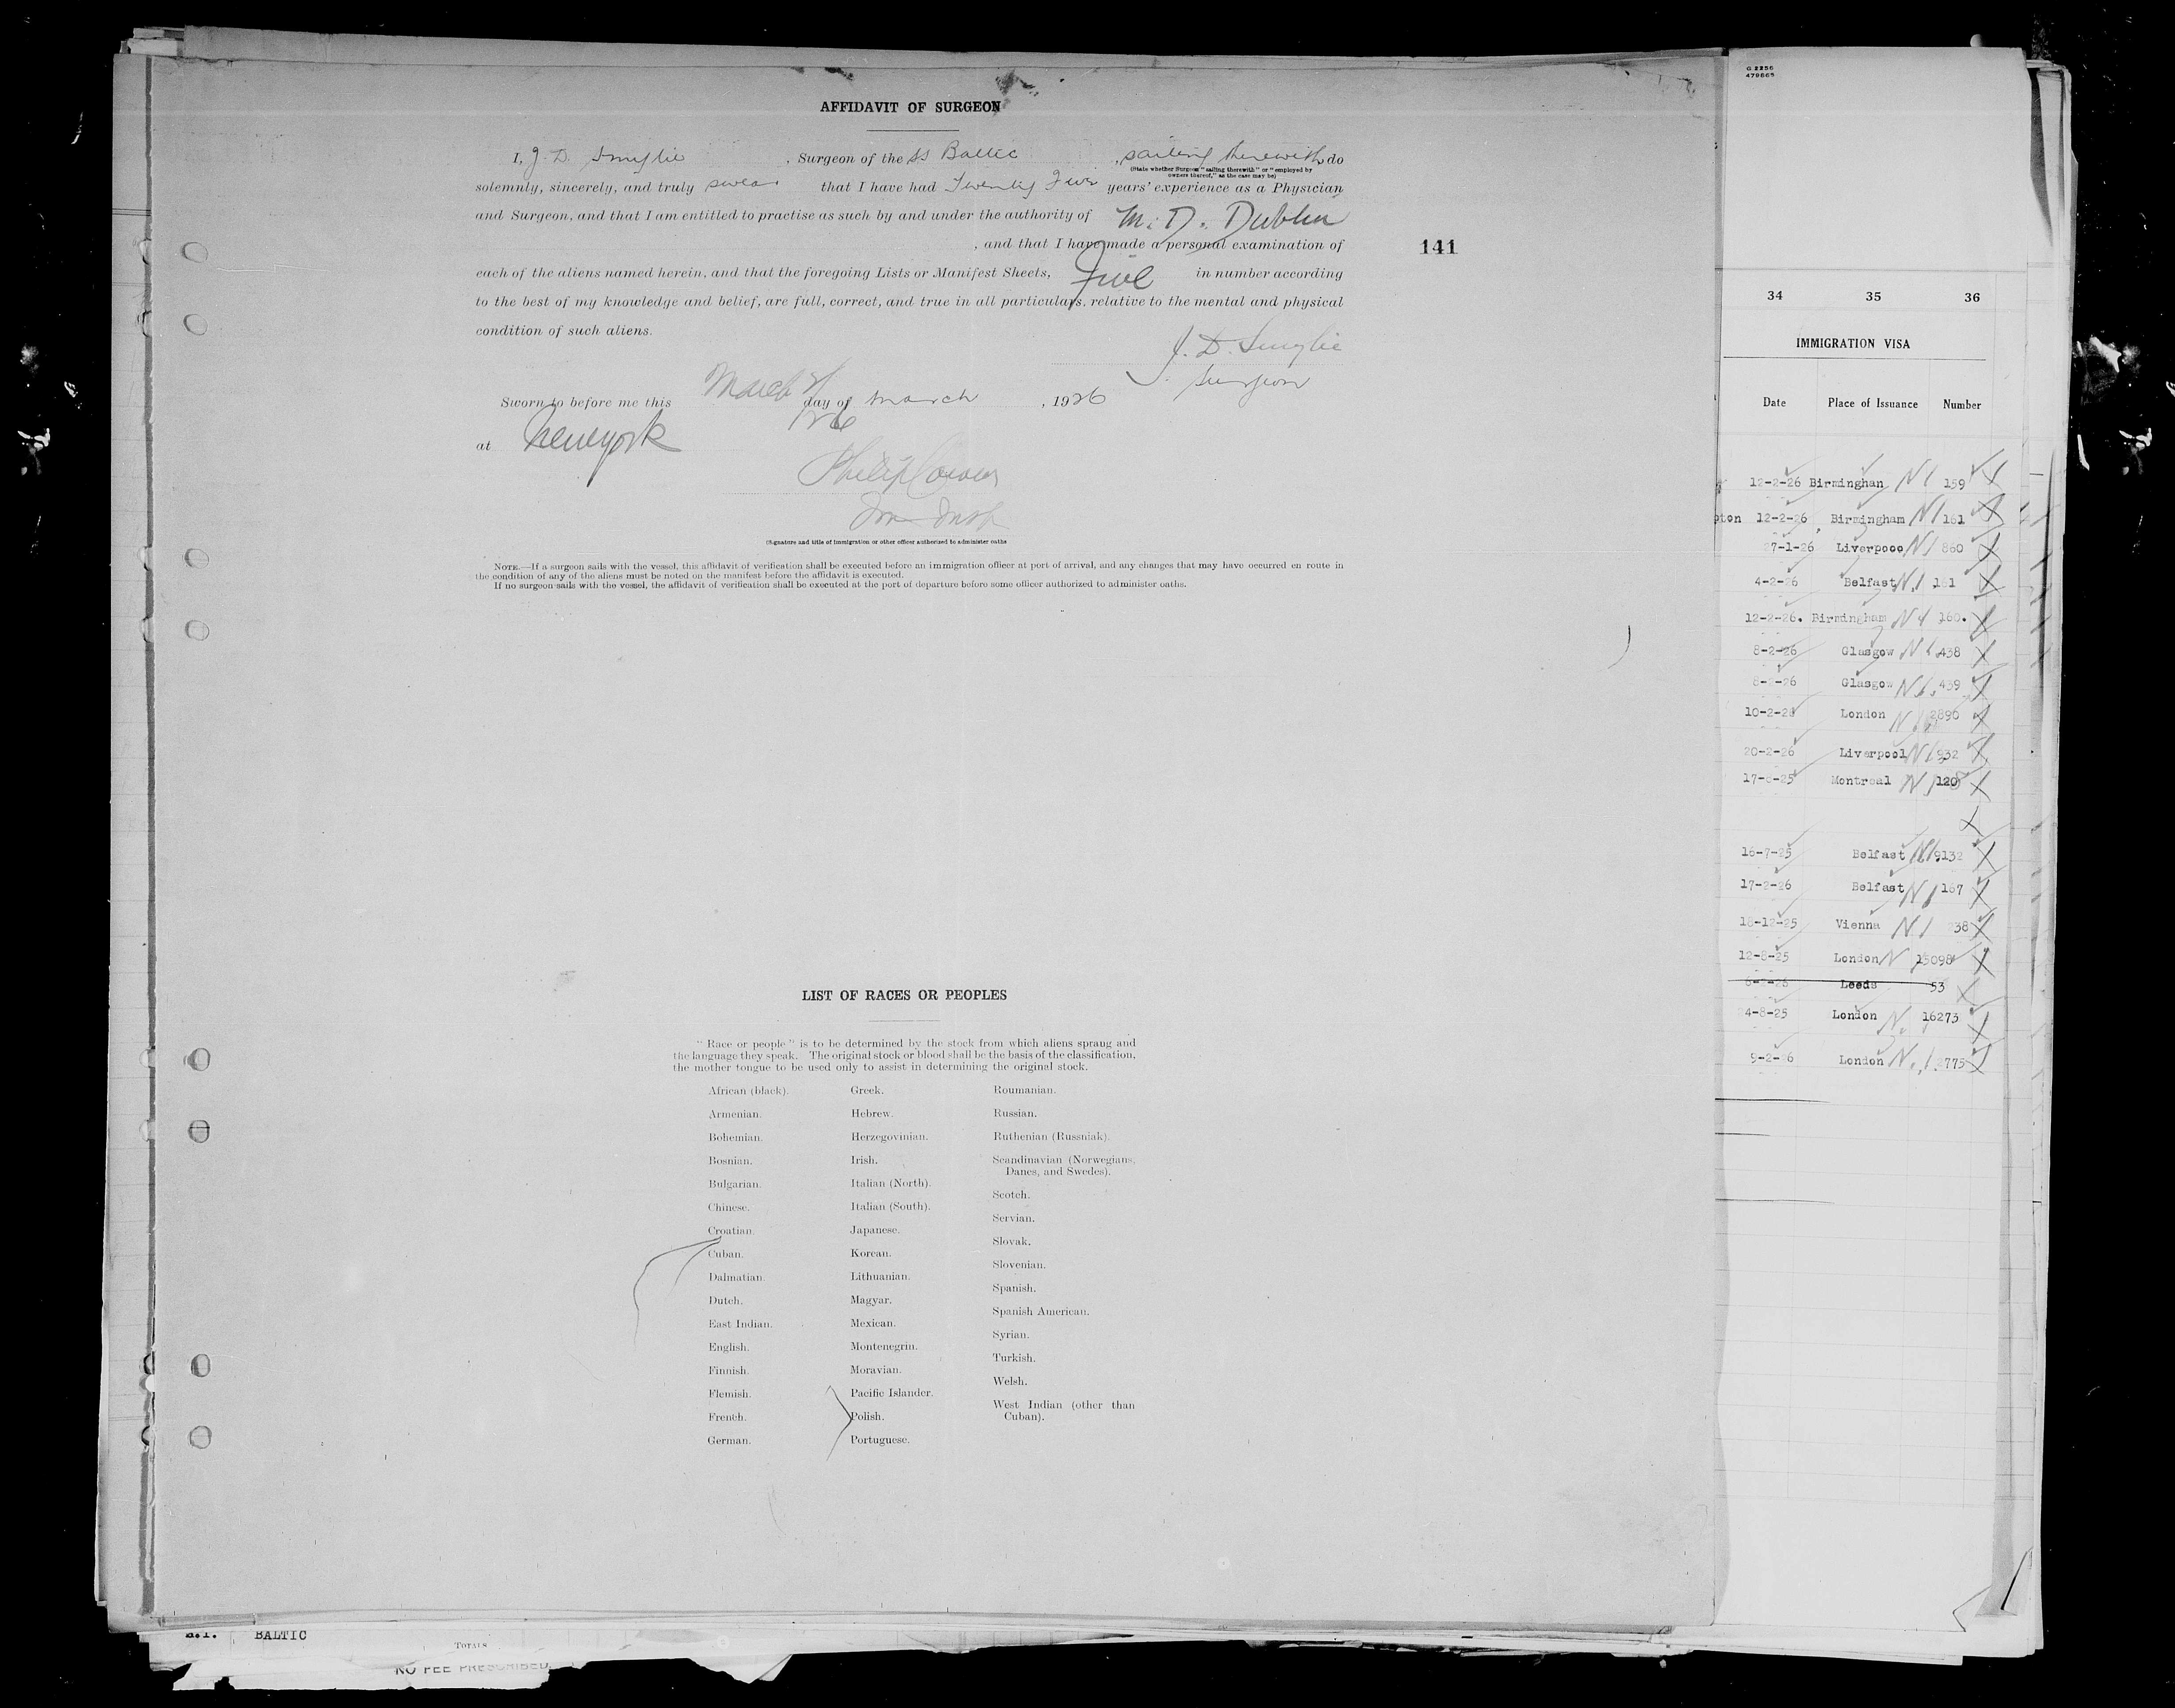 AFFIDAVIT OF SURGEON
I, J. D. Smylie, Surgeon of the SS Baltic, sailing therewith, do
(State whether Surgeon "sailing therewith" or "employed by
owners thereof," as the case may be)
solemnly, sincerely, and truly swear that I have had Twenty Five years' experience as a Physician
and Surgeon, and that I am entitled to practise as such by and under the authority of M. D. Dublin
, and that I have made a personal examination of
141
each of the aliens named herein, and that the foregoing Lists or Manifest Sheets, Five in number according
to the best of my knowledge and belief, are full, correct, and true in all particulars, relative to the mental and physical
condition of such aliens.
J. D. Smylie
Surgeon
Sworn to before me this March day of March, 1926
26
at New York
Philip
(Signature and title of immigration or other officer authorized to administer oaths
NOTE.—If a surgeon sails with the vessel, this affidavit of verification shall be executed before an immigration officer at port of arrival, and any changes that may have occurred en route in
the condition of any of the aliens must be noted on the manifest before the affidavit is executed.
If no surgeon sails with the vessel, the affidavit of verification shall be executed at the port of departure before some officer authorized to administer oaths.
LIST OF RACES OR PEOPLES
"Race or people" is to be determined by the stock from which aliens sprang and
the language they speak. The original stock or blood shall be the basis of the classification,
the mother tongue to be used only to assist in determining the original stock.
African (black).
Armenian.
Bohemian.
Bosnian.
Bulgarian.
Chinese.
Croatian.
Cuban.
Dalmatian.
Dutch.
East Indian.
English.
Finnish.
Flemish.
French.
German.
Greek.
Hebrew.
Herzegovinian.
Irish.
Italian (North).
Italian (South).
Japanese.
Korean.
Lithuanian.
Magyar.
Mexican.
Montenegrin.
Moravian.
Pacific Islander.
Polish.
Portuguese.
Roumanian.
Russian.
Ruthenian (Russniak).
Scandinavian (Norwegians,
Danes, and Swedes).
Scotch.
Servian.
Slovak.
Slovenian.
Spanish.
Spanish American.
Syrian.
Turkish.
Welsh.
West Indian (other than
Cuban).
G 2256
479665
34 35 36
IMMIGRATION VISA
Date Place of Issuance Number
12-2-26 Birminghan N1 159
pton 12-2-26 Birmingham N1 161
27-1-26 Liverpooo N1 860
4-2-26 Belfast N1 191
12-2-26. Birmingham 160.
8-2-26 Glasgow 438
8-2-26 Glasgow 439
10-2-26 London 2890
20-2-26 Liverpool N1 932
17-8-25 Montreal N1 1208
16-7-25 Belfast 9132
17-2-26 Belfast N1 167
18-12-25 Vienna N1 238
12-8-25 London N 15098
Leeds 53
4-8-25 London N. 16273
9-2-26 London N.1 2775
BALTIC
TOTALS
NO FEE PRESCRIBED